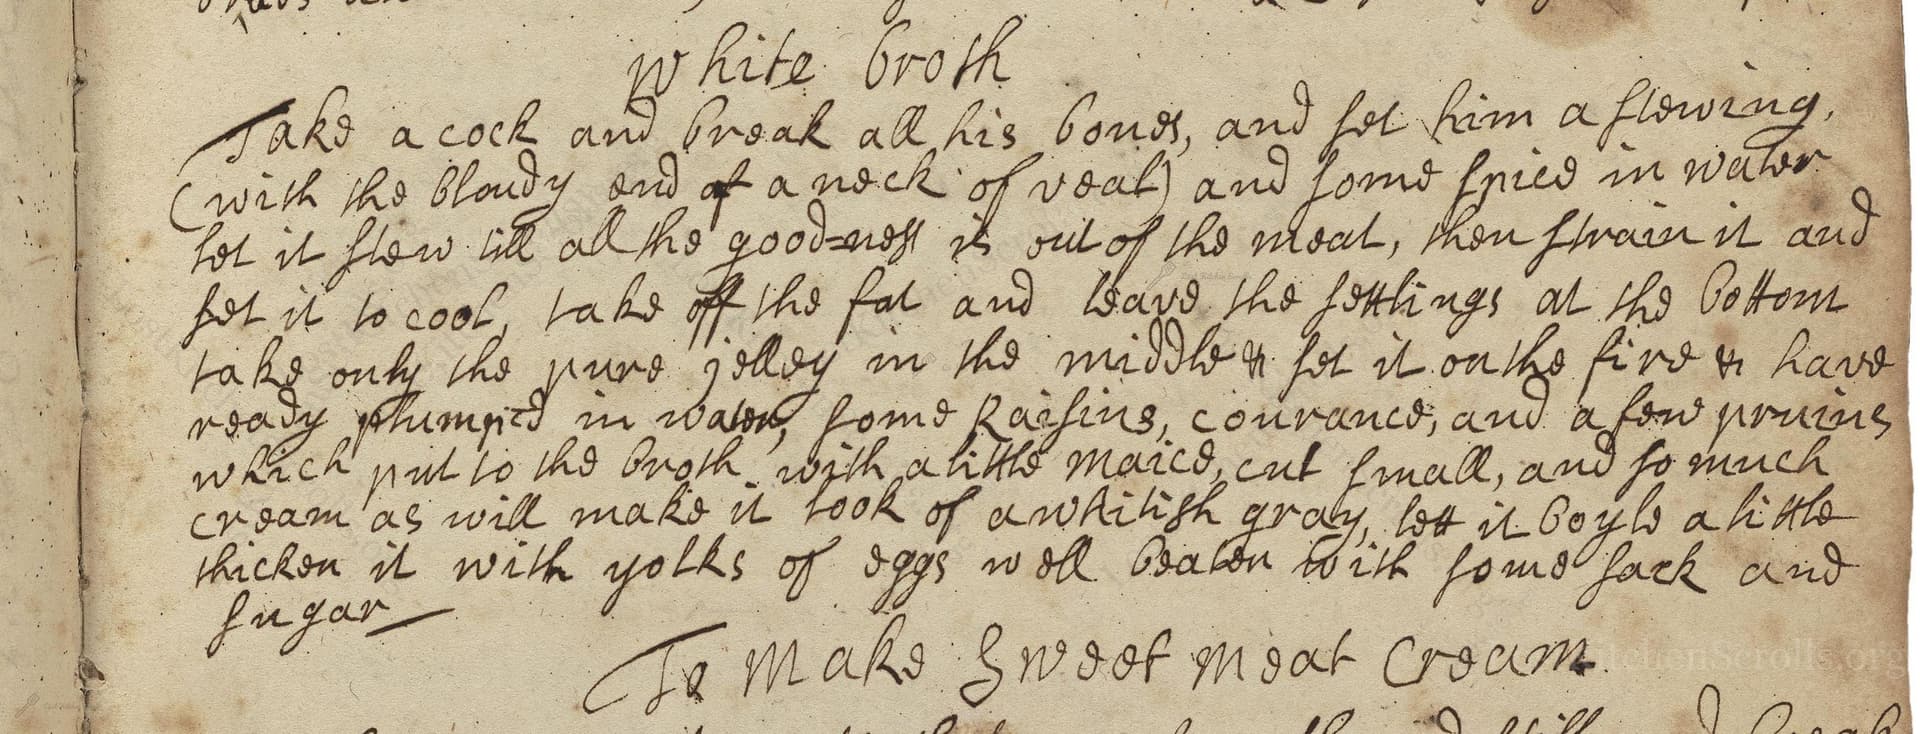 White broth
Take a cock and break all his bones, and set him a stewing,
(with the bloudy end of a neck of veal) and some spice in water
let it stew till all the good=ness is out of the meat, then strain it and
set it to cool, take off the fat and leave the settlings at the bottom
take only the pure jelley in the middle & set it on the fire & have
ready plumpt in water, some Raisins, courance, and a few pruins
which put to the broth with a little maice, cut small, and so much
cream as will make it look of a whitish gray, lett it boyle a little
thicken it with yolks of eggs well beaten with some sack and
sugar
To Make Sweet meat Cream
KitchenScrolls.org